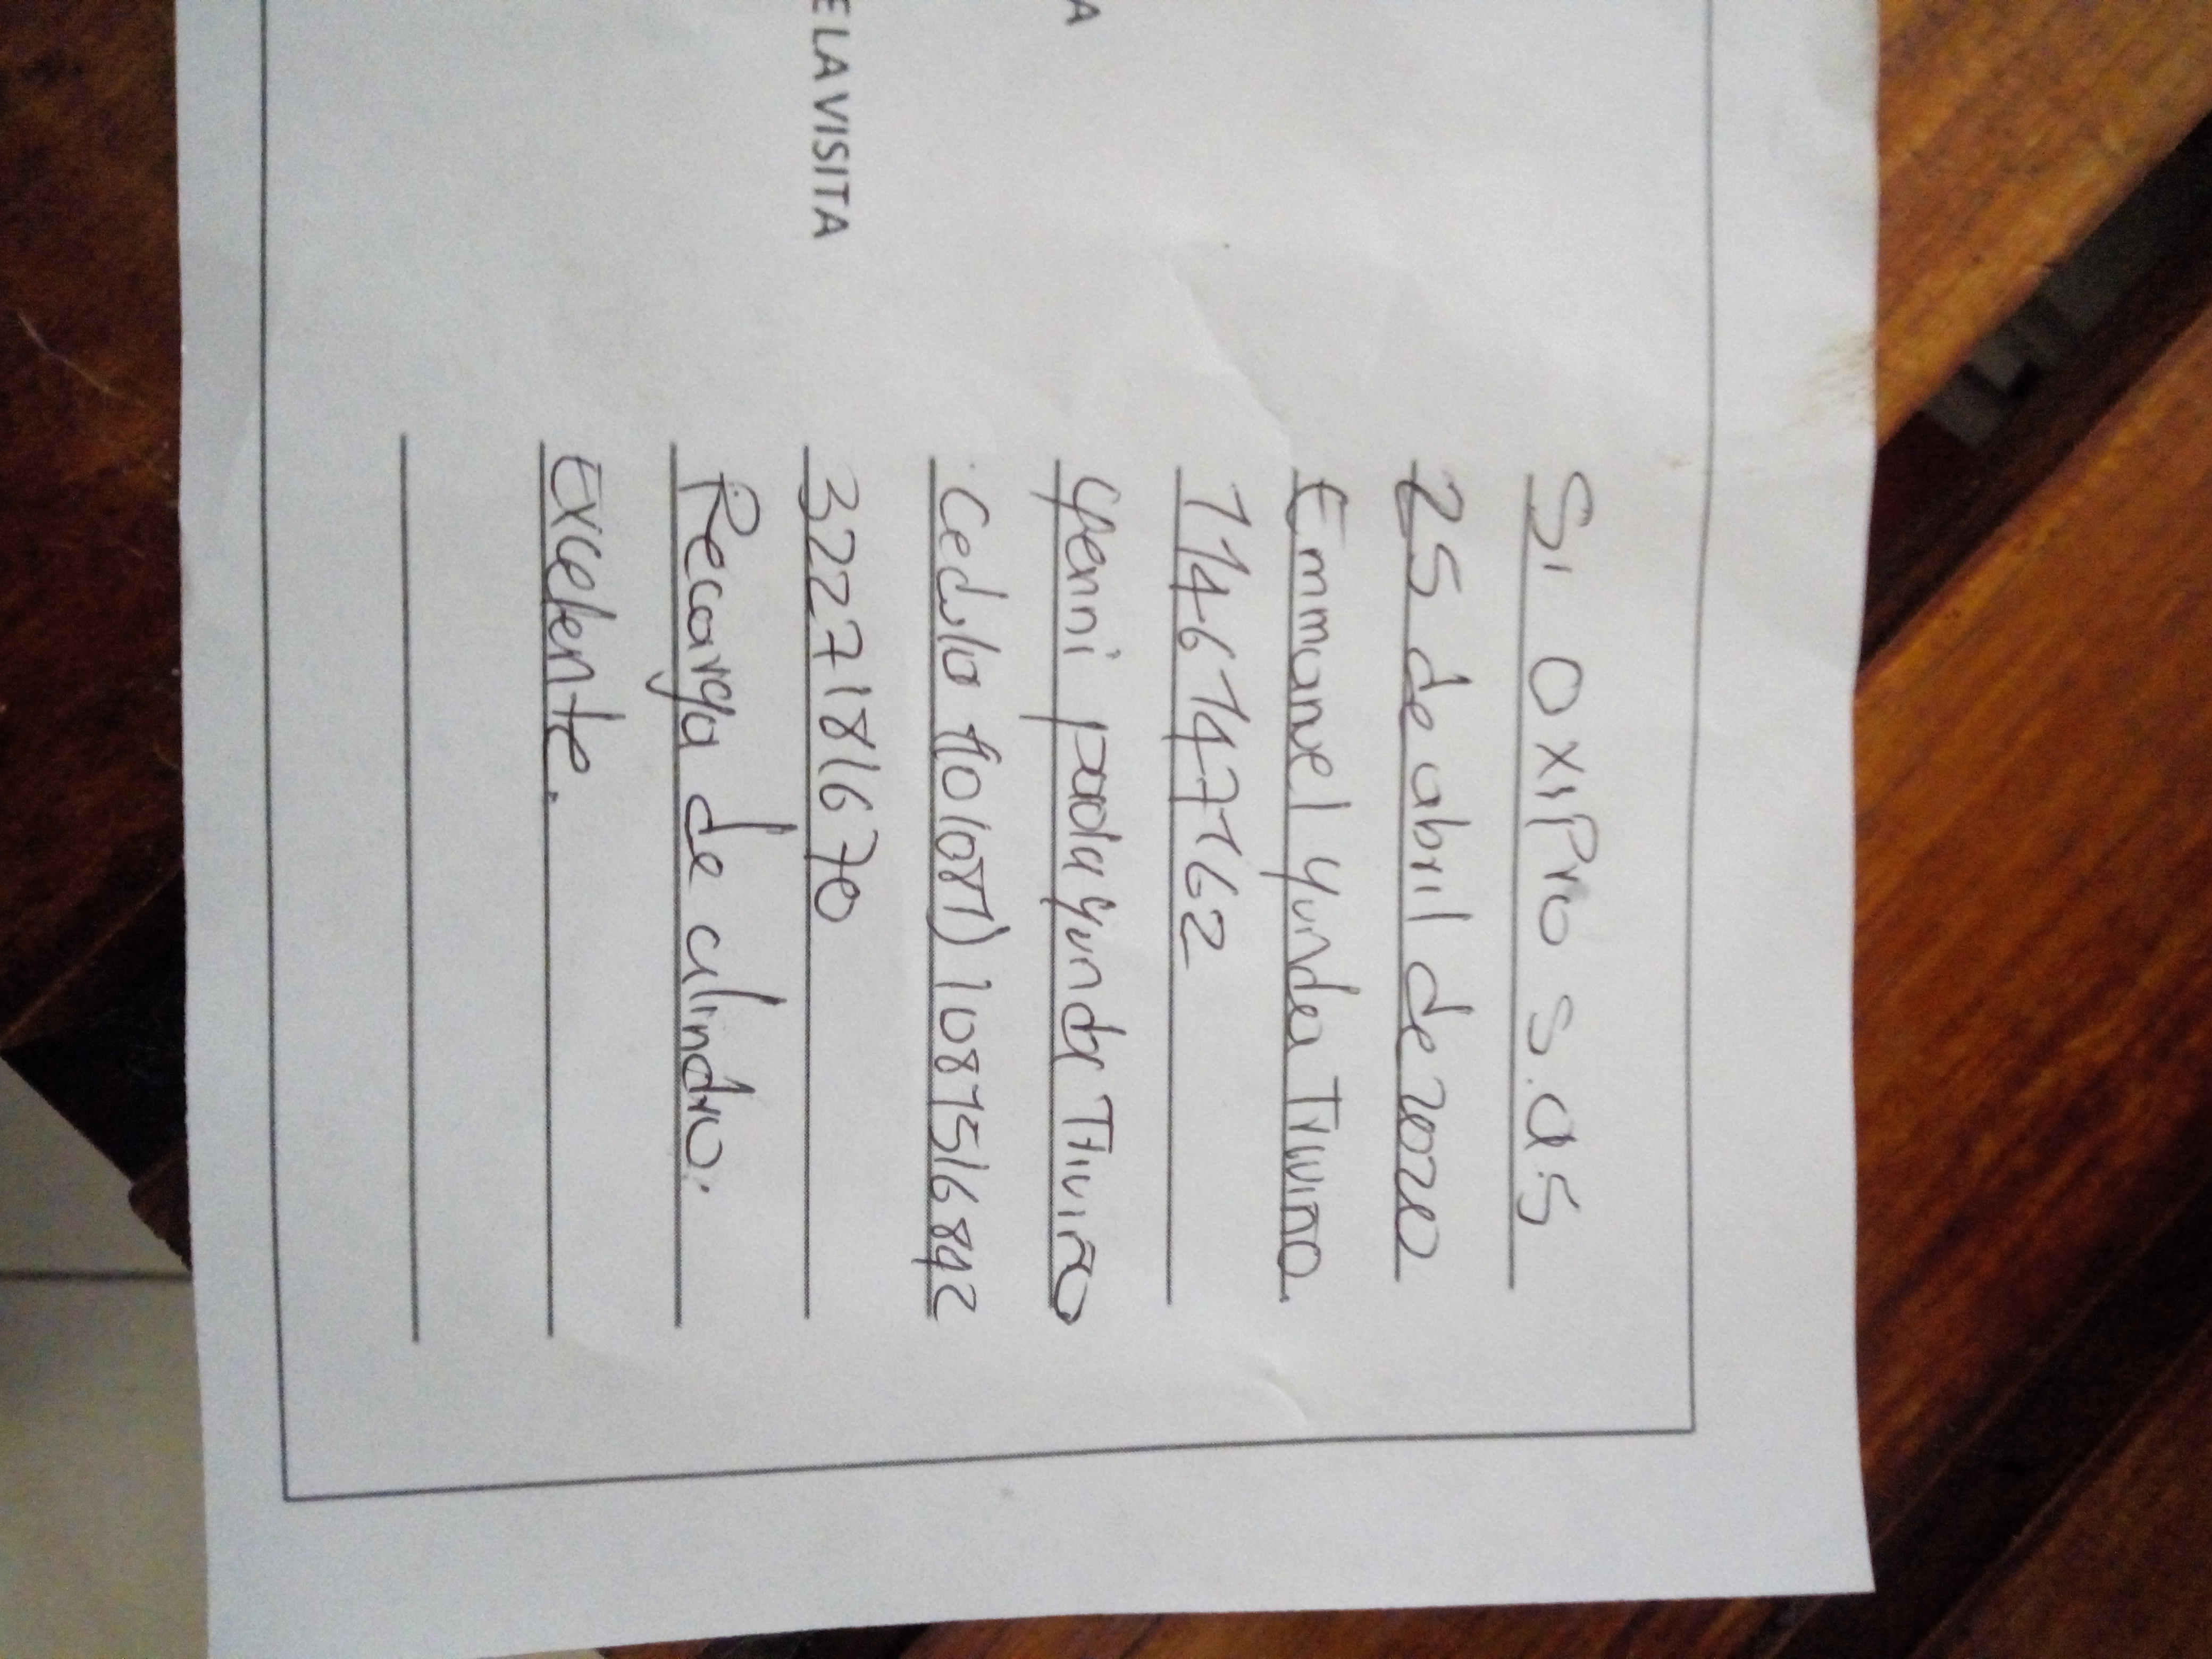 A
E LA VISITA
Si OXiPro S.a.S
25 de abril de 2020
Emmanuel Yunda Triviño.
1146147762
Yenni paola Yunda Triviño
Cedula 1087516842
3227181670
Recarga de cilindro.
Excelente.